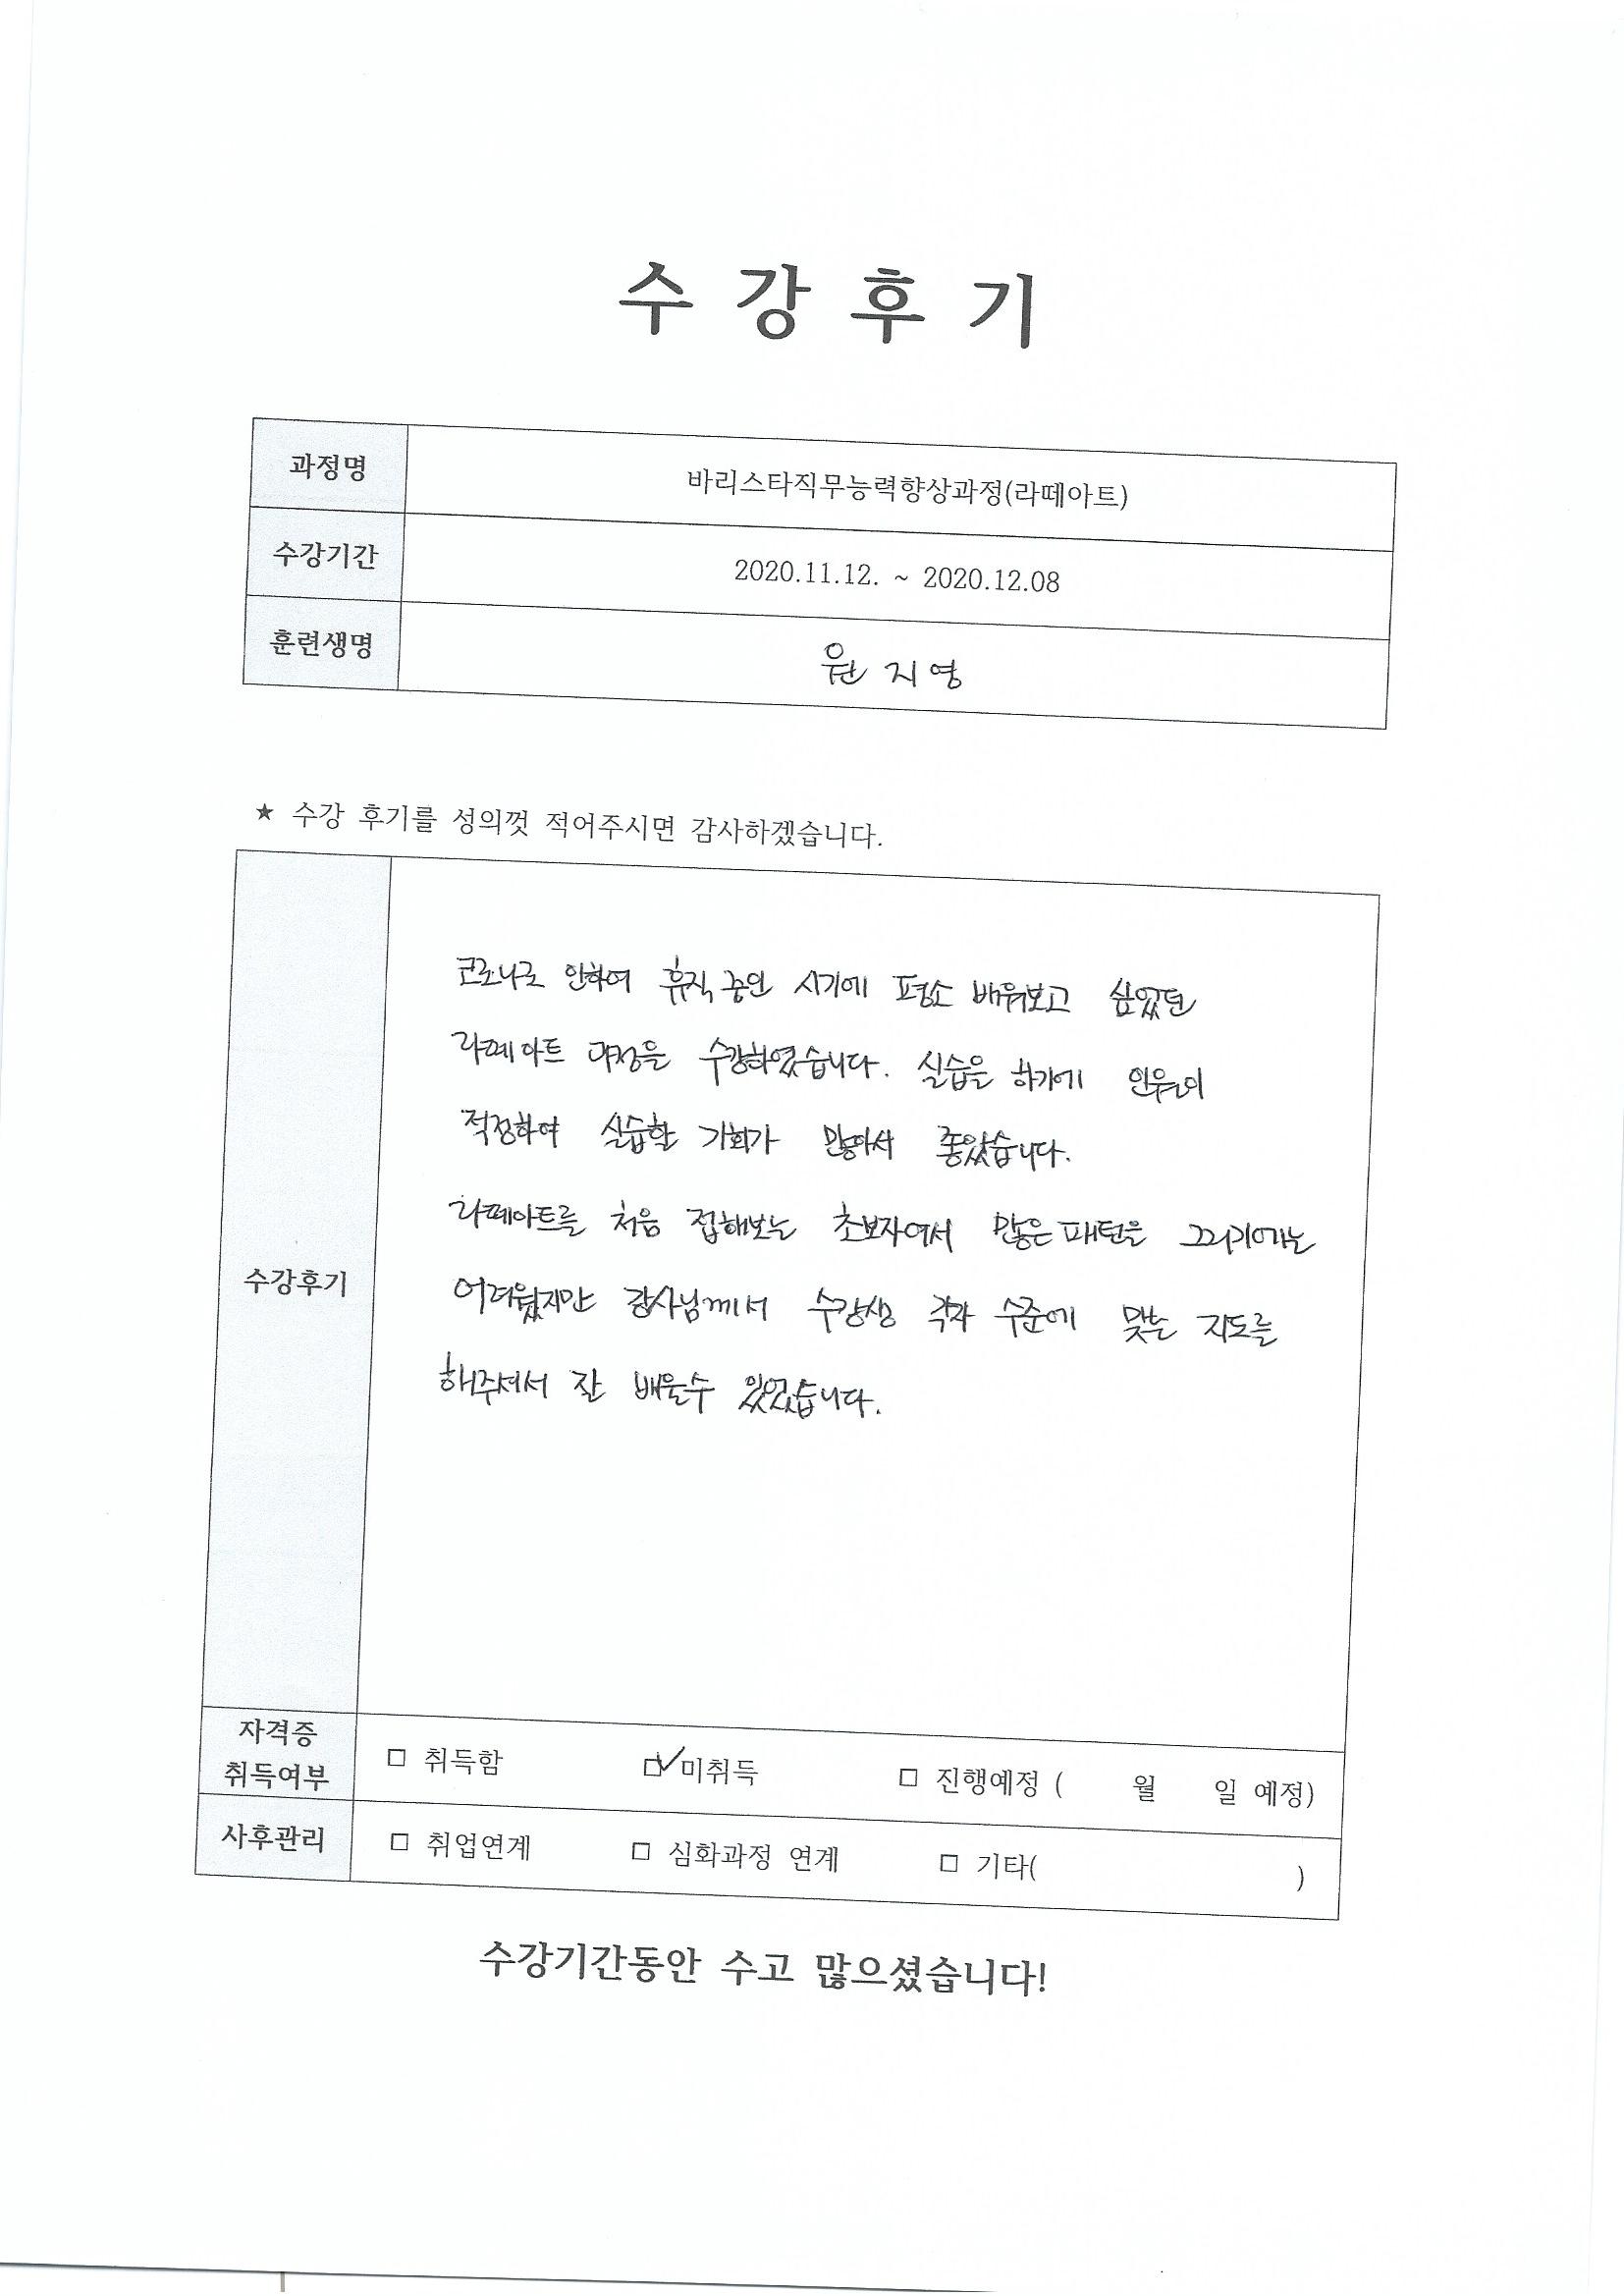 수 강 후 기
과정명 바리스타직무능력향상과정(라떼아트)
수강기간 2020.11.12. ~ 2020.12.08
훈련생명 원 지 영
★ 수강 후기를 성의껏 적어주시면 감사하겠습니다.
수강후기
코로나로 인하여 휴직 중인 시기에 평소 배워보고 싶었던
라떼아트 과정을 수강하였습니다. 실습을 하기에 인원이
적정하여 실습할 기회가 많아서 좋았습니다.
라떼아트를 처음 접해보는 초보자여서 많은 패턴을 그리기에는
어려웠지만 강사님께서 수강생 각자 수준에 맞는 지도를
해주셔서 잘 배울수 있었습니다.
자격증
취득여부 □ 취득함 ☑ 미취득 □ 진행예정 ( 월 일 예정)
사후관리 □ 취업연계 □ 심화과정 연계 □ 기타( )
수강기간동안 수고 많으셨습니다!